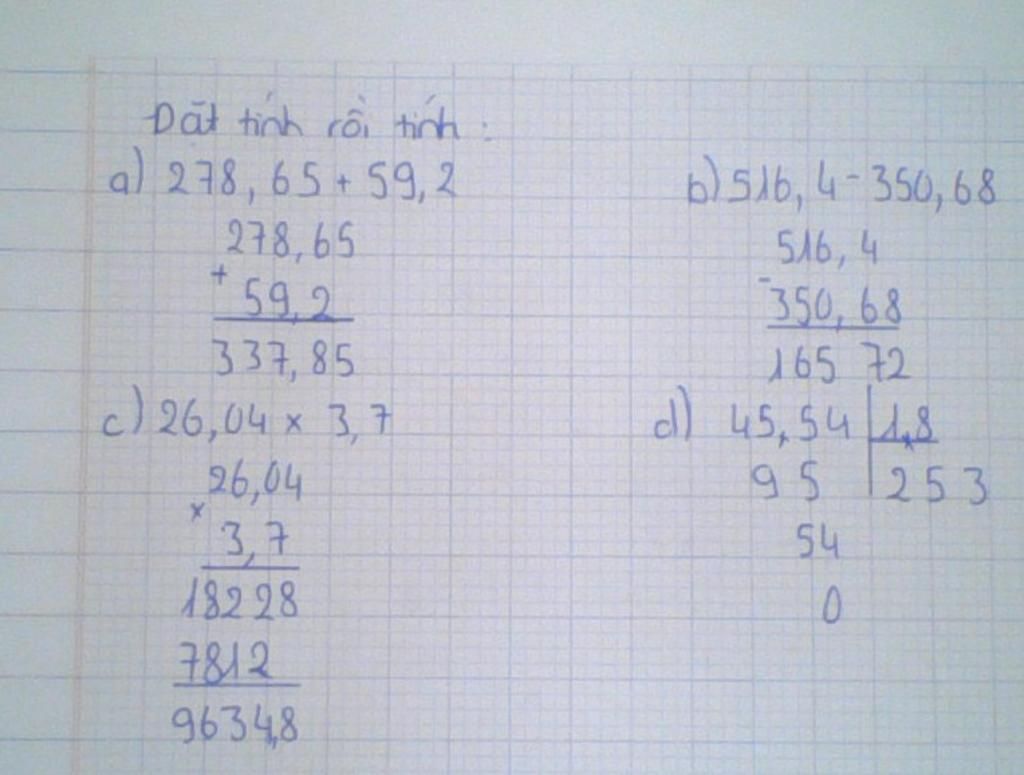 Đặt tính rồi tính :
a) 278,65 + 59,2
278,65
+
59,2
337,85
b) 516,4 - 350,68
516,4
-
350,68
165 72
c) 26,04 x 3,7
26,04
x
3,7
18228
7812
9634,8
d) 45,54 1,8
95 253
54
0